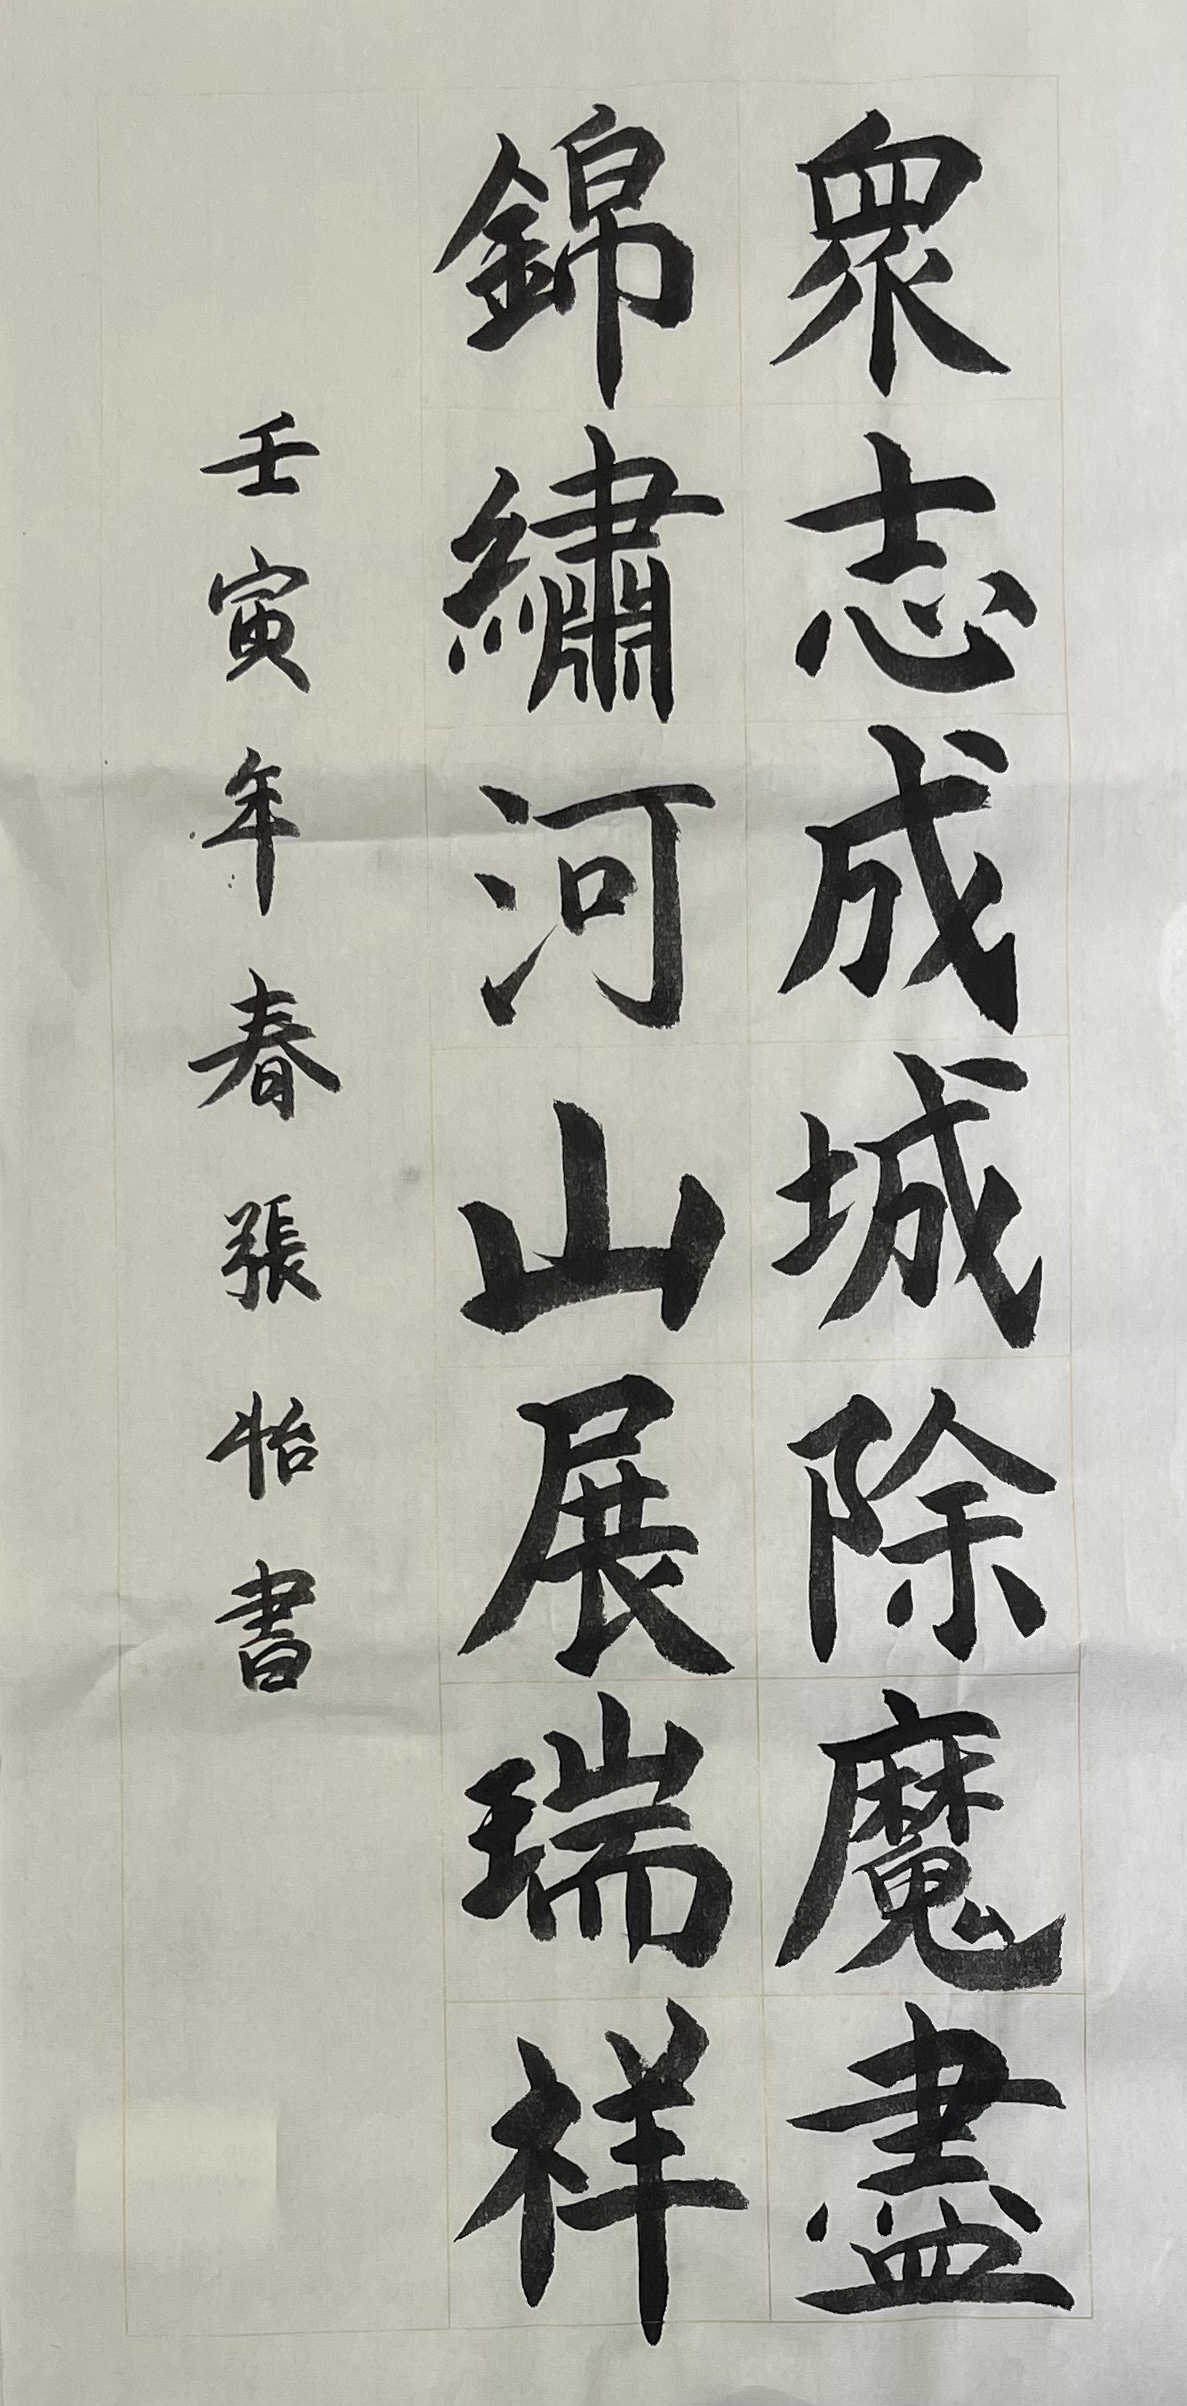 眾志成城除魔盡
錦繡河山展瑞祥
壬寅年春張怡書